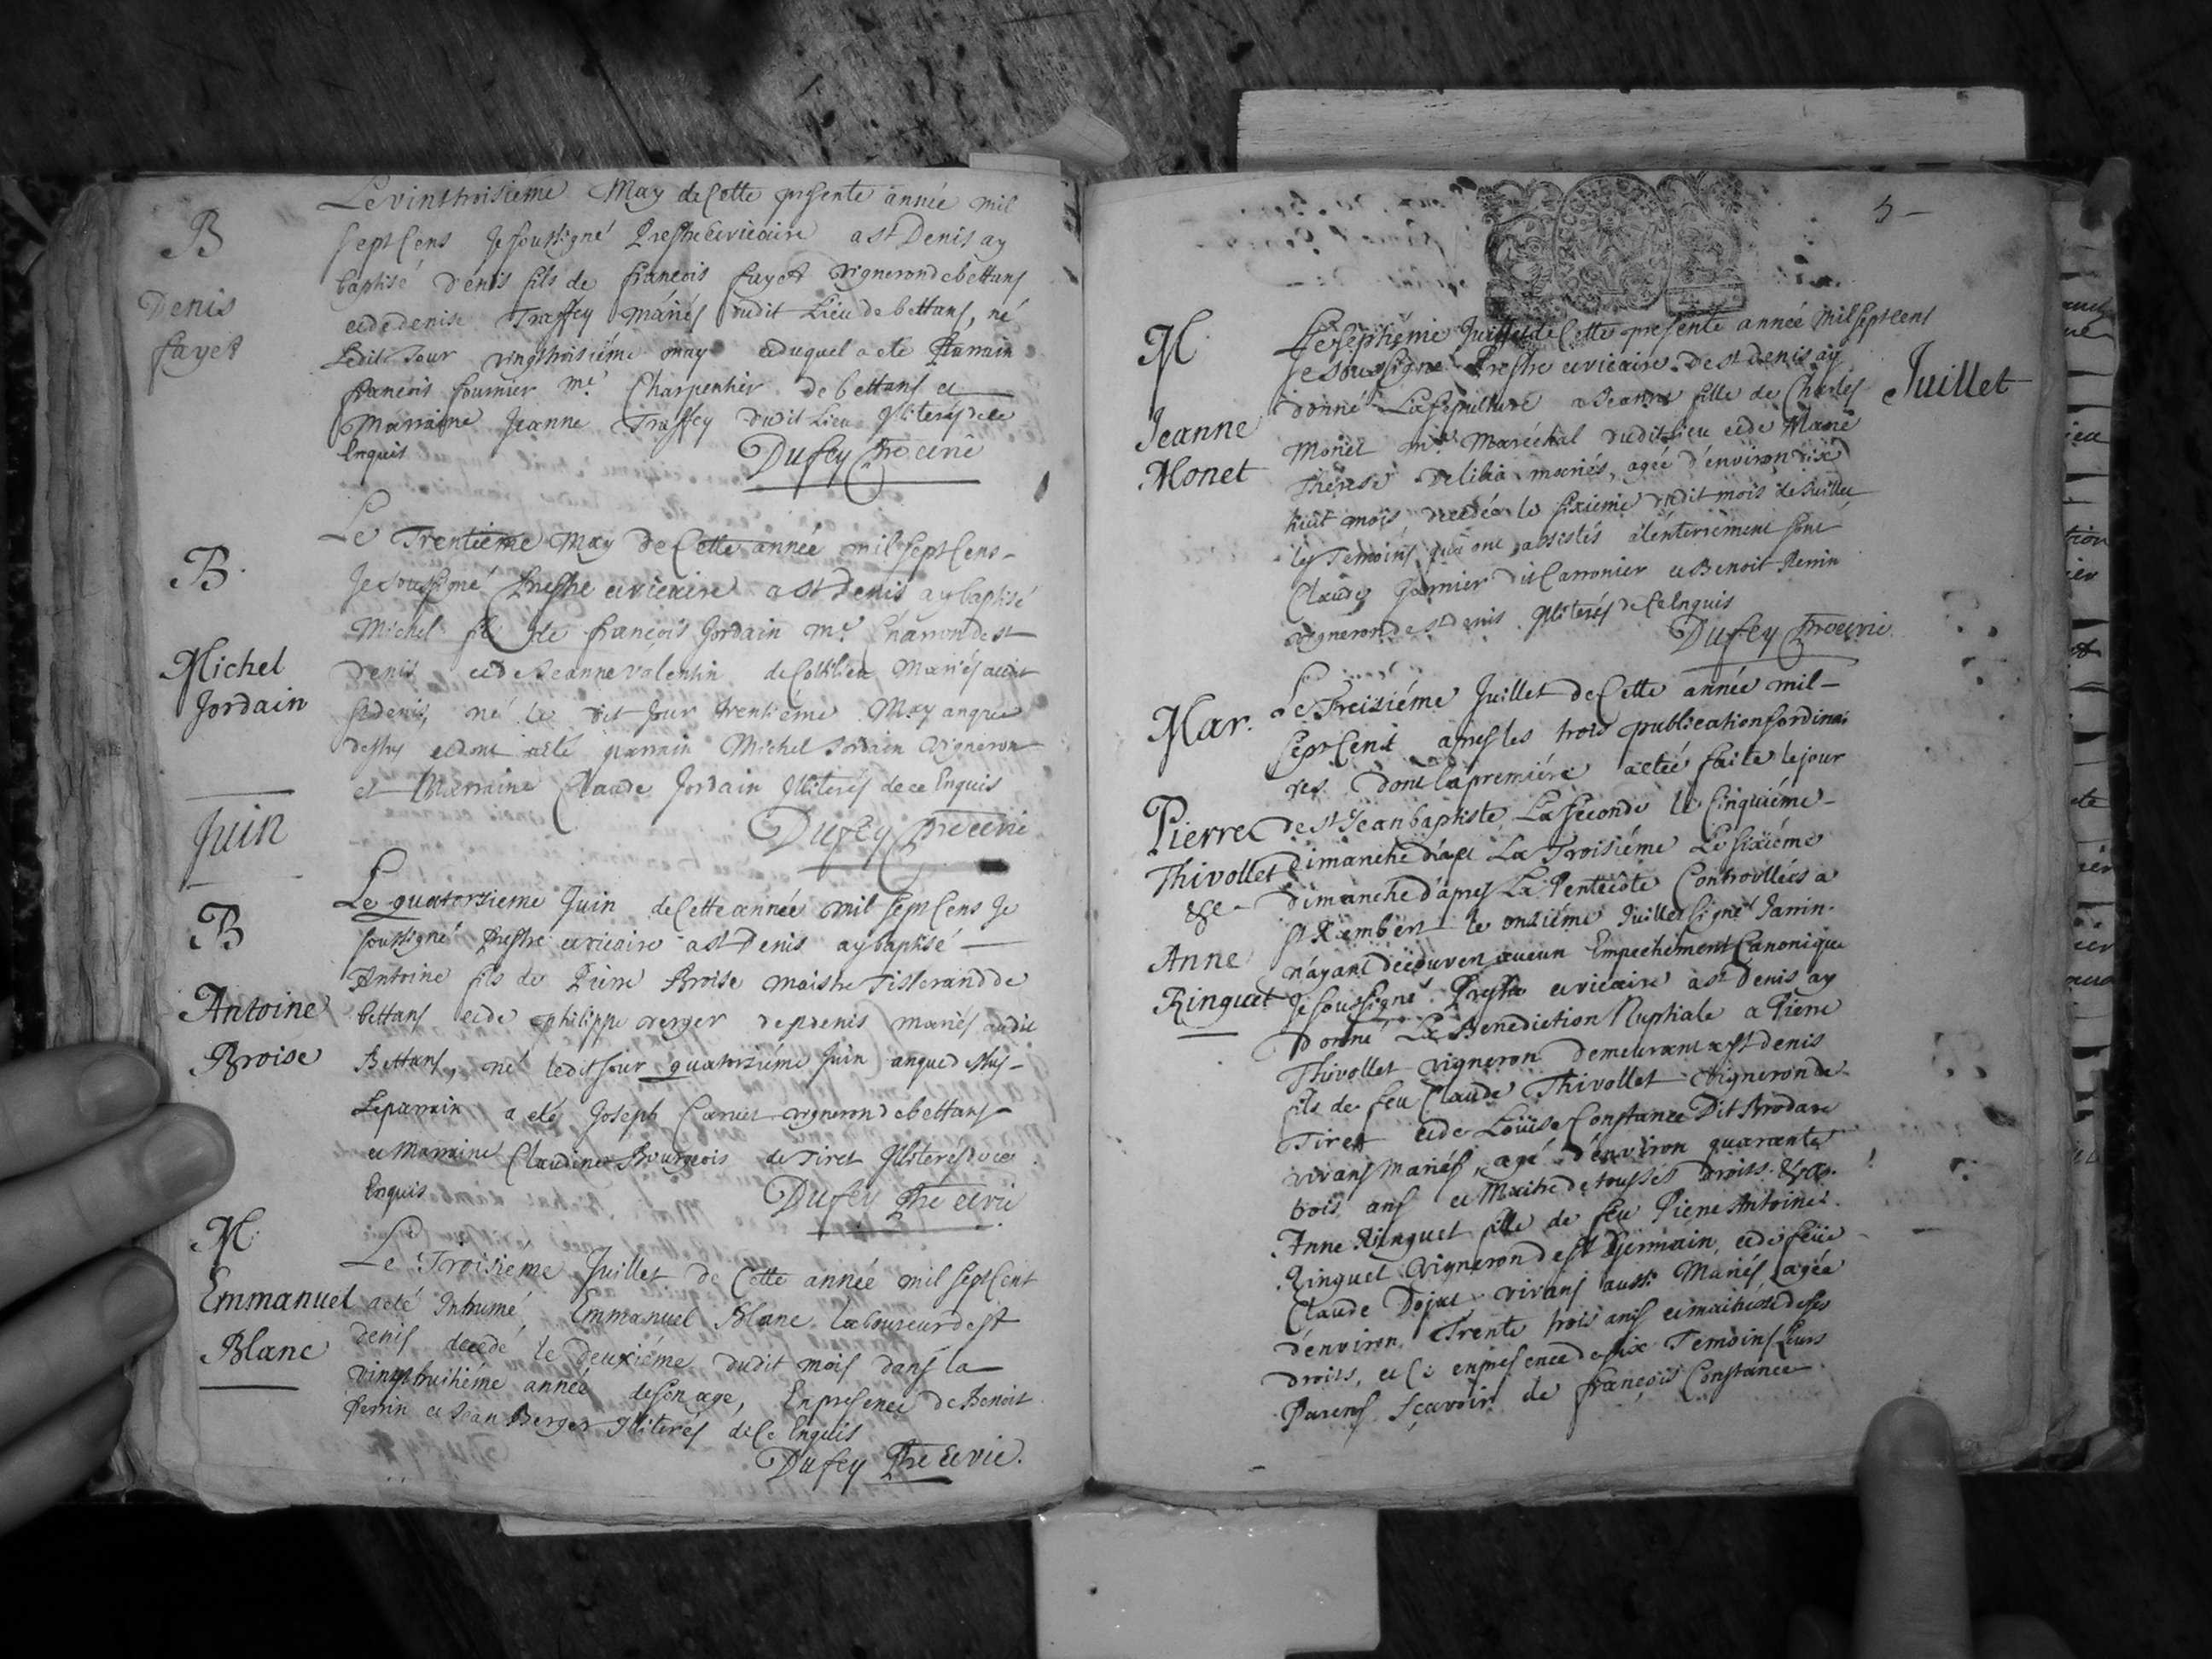 B
Denis
fayet
Le vintroisieme May de Cette presente année mil
sept Cens Je soussigné Prestre et vicaire a st Denis ay
baptisé denis fils de françois fayet vigneron de bettans
et de denise Traffey mariés dudit Lieu de bettans, né
Ledit Jour vingtroisiéme may et duquel a eté Parrain
françois fournier me. Charpentier de bettans et
Marraine Jeanne Traffey dudit Lieu Illiterés de ce
Enquis Dufey Pre et vic
B
Michel
Jordain
Le Trentieme May de Cette année mil sept Cens
Je soussigné Prestre et vicaire a st Denis ay baptisé
Michel fils de françois Jordain me. Charron de st
denis et de Jeanne Valentin de Mariés audit
st denis, né le dit Jour trentiéme May an que
dessus et dont a eté parrain Michel Jordain vigneron
et Marraine Claude Jordain Illiterés de ce Enquis
Dufey Pre et vic
Juin
B
Antoine
Broise
Le quatorzieme Juin de Cette année mil sept Cens Je
soussigné Prestre et vicaire a st Denis ay baptisé
Antoine fils de Pierre Broise maistre Tisserand de
bettans et de philippe verger de st denis mariés audit
Bettans, né ledit Jour quatorziéme Juin an que dessus
Le parrain a eté Joseph vigneron de bettans
et Marraine Claudine Bourgeois de Tiret Illiterés de ce
Enquis Dufey Pre et vic
M
Emmanuel
Blanc
Le Troisiéme Juillet de Cette année mil sept Cent
a eté Inhumé, Emmanuel Blanc laboureur de st
denis decedé le deuxiéme dudit mois dans la
vingthuitiéme année de son age, En presence de Benoit
perrin et Jean Berger Illiterés de Ce Enquis
Dufey Pre et vic.
5
M
Jeanne
Monet
Juillet
Le septiéme Juillet de Cette presente année mil sept cens
Je soussigné Prestre et vicaire de st denis ay
donné La sepulture a Jeanne fille de Charles
Monet me. Maréchal dudit lieu et de Marie
Therese mariés, agée d'environ dix
huit mois decedée le sixieme dudit mois de Juillet
les Temoins qui ont assistés a l'enterrement sont
Claude Garnier dit Carronier et Benoit Perrin
vigneron de st denis Illiterés de Ce Enquis
Dufey Pre et vic
Mar.
Pierre
Thivollet
&
Anne
Ringuet
Le Treiziéme Juillet de Cette année mil
sept Cent apres les trois publications ordinai
res dont la premiére a eté faite le jour
de st Jean baptiste La seconde le Cinquiéme
dimanche d'apres La Troisiéme Le sixiéme
dimanche d'apres La Pentecôte Controllées a
st Rambert le onziéme Juillet signé Janin.
n'ayant decouvert aucun Empechement Canonique
Je soussigné Prestre et vicaire a st Denis ay
donné La Benediction Nuptiale a Pierre
Thivollet vigneron demeurant a st denis
fils de feu Claude Thivollet vigneron de
Tiret et de Loüise Constance Dit Brodare
vivans Mariés, agé d'environ quarante
trois ans et Maitre de tous ses droits. Et a
Anne Ringuet fille de feu Pierre Antoine
Ringuet vigneron de st Germain, et de feüe
Claude Dojat vivans aussi Mariés, agée
d'environ Trente trois ans et maitresse de ses
droits, et Ce en presence de six Temoins Leurs
Parens sçavoir de françois Constance